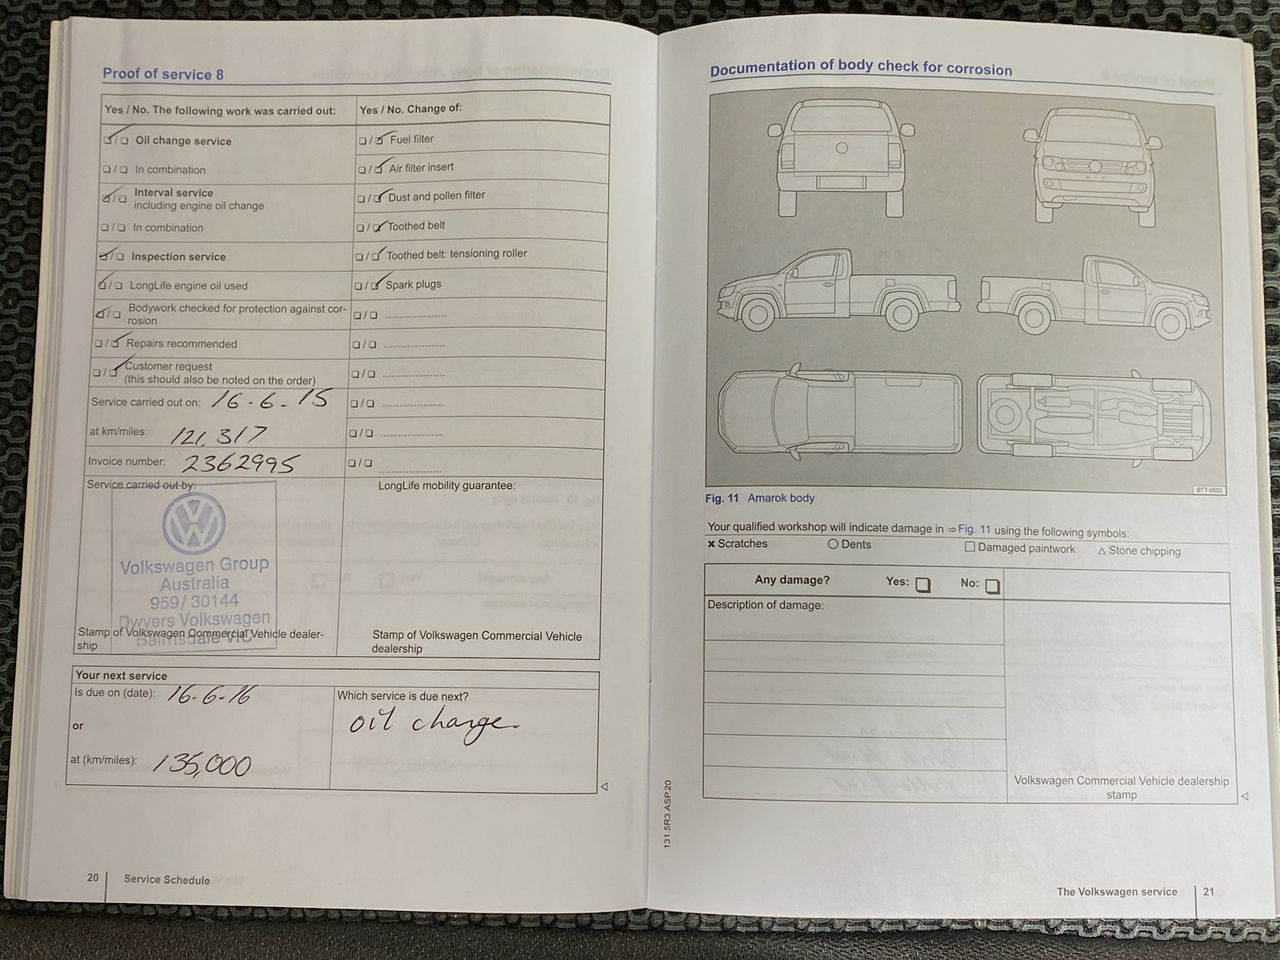 Proof of service 8
Yes / No. The following work was carried out:
Yes / No. Change of:
Oil change service
Fuel filter
In combination
Air filter insert
Interval service
including engine oil change
Dust and pollen filter
In combination
Toothed belt
Inspection service
Toothed belt: tensioning roller
LongLife engine oil used
Spark plugs
Bodywork checked for protection against cor-
rosion
Repairs recommended
Customer request
(this should also be noted on the order)
Service carried out on: 16-6-15
at km/miles: 121,317
Invoice number: 2362995
Service carried out by:
LongLife mobility guarantee:
Volkswagen Group
Australia
959/30144
Dwyers Volkswagen
Bairnsdale VIC
Stamp of Volkswagen Commercial Vehicle dealer-
ship
Stamp of Volkswagen Commercial Vehicle
dealership
Your next service
Is due on (date): 16-6-16
or
at (km/miles): 135,000
Which service is due next?
oil change
20 Service Schedule
Documentation of body check for corrosion
BTT-0502
Fig. 11 Amarok body
Your qualified workshop will indicate damage in ⇒ Fig. 11 using the following symbols:
× Scratches ○ Dents □ Damaged paintwork △ Stone chipping
Any damage? Yes: No:
Description of damage:
Volkswagen Commercial Vehicle dealership
stamp
131.5R3.ASP.20
The Volkswagen service 21